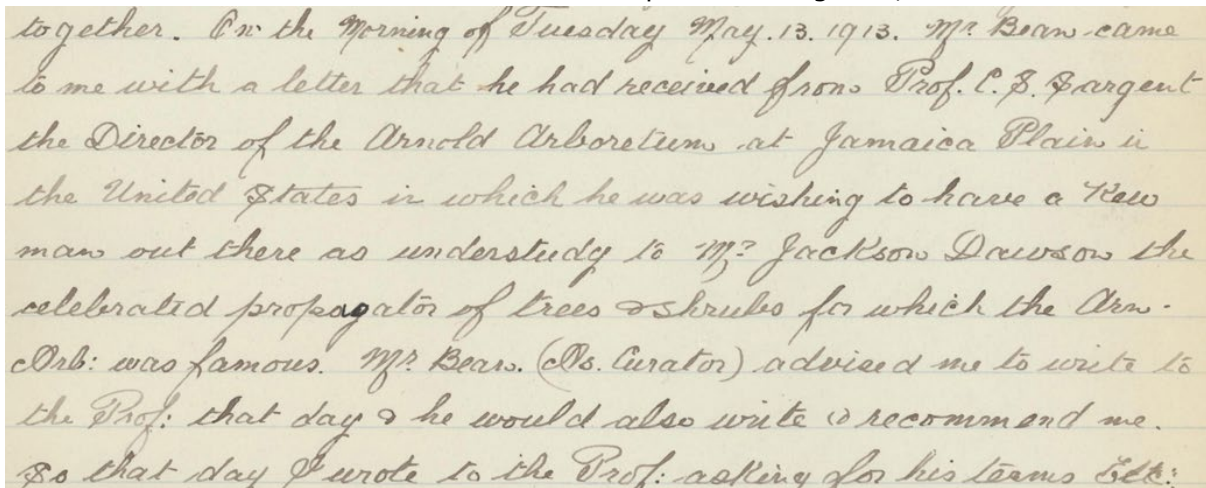 together. On the Morning of Tuesday May. 13. 1913. Mr. Bean came
to me with a letter that he had received from Prof. C. S. Sargent
the Director of the Arnold Arboretum at Jamaica Plain in
the United States in which he was wishing to have a Kew
man out there as understudy to Mr. Jackson Dawson the
celebrated propagator of trees & shrubs for which the Arn-
Arb: was famous. Mr. Bean. (As. Curator) advised me to write to
the Prof: that day & he would also write & recommend me.
So that day I wrote to the Prof: asking for his terms Etc: